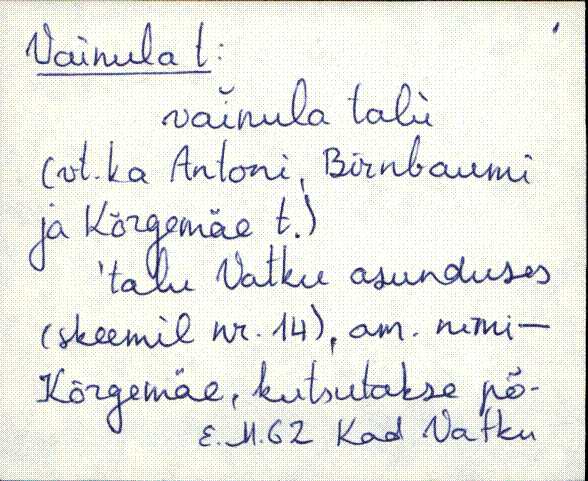 Vainula t:
vaĭnula talù
(vt. ka Antoni, Birnbaumi
ja Kõrgemäe t.)
'talu Vatku asunduses
(skeemil nr. 14), am. nimi—
Kõrgemäe, kutsutakse põ-
E.M.62 Kad Vatku